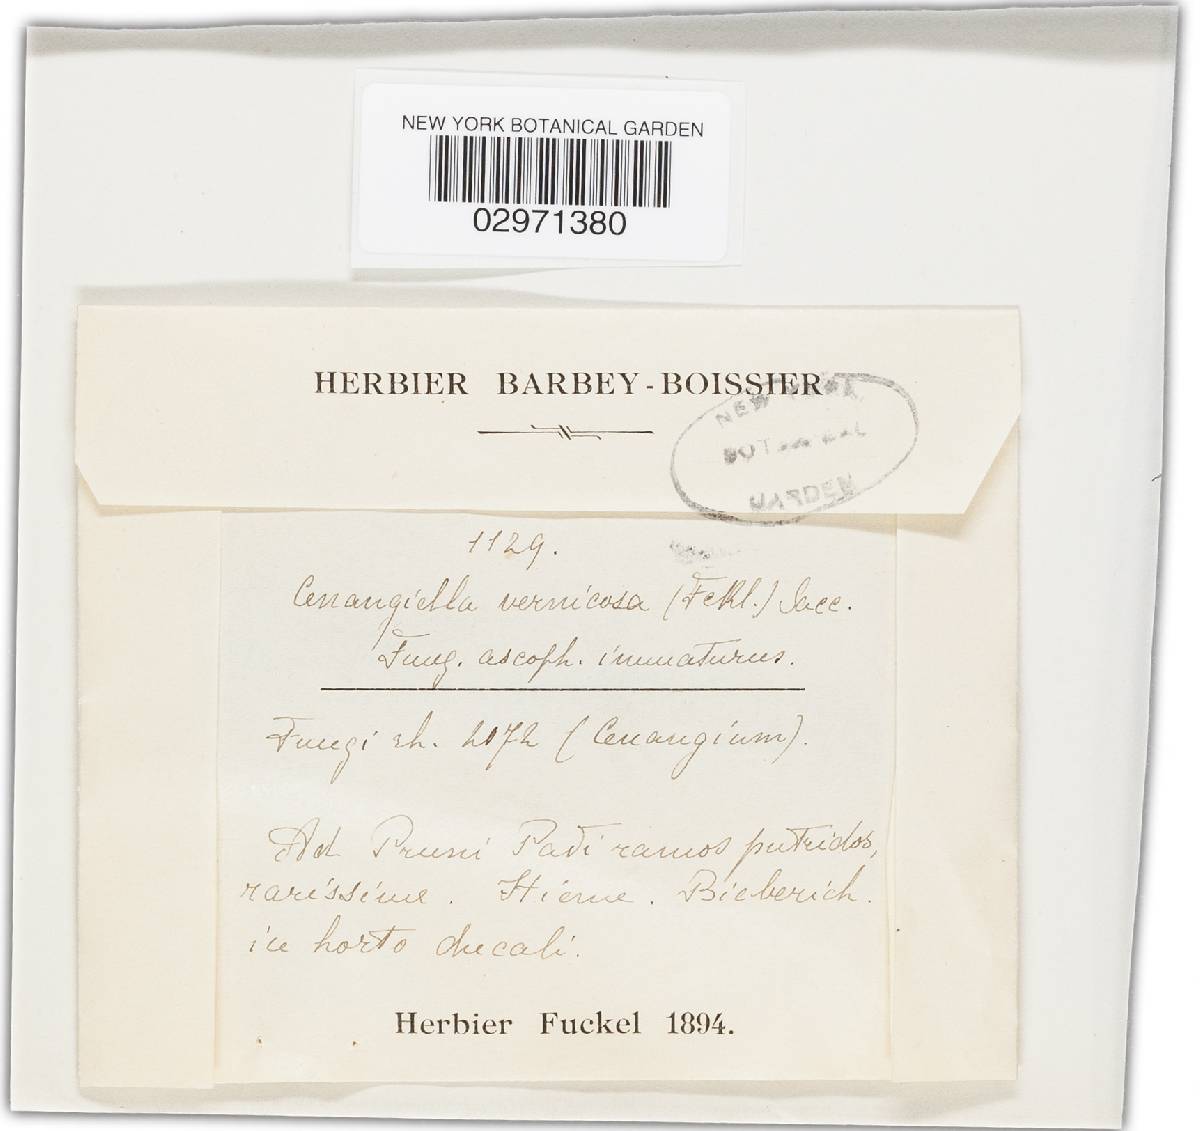 NEW YORK BOTANICAL GARDEN
02971380
HERBIER BARBEY-BOISSIER
NEW YORK
BOTANICAL
GARDEN
1129.
Cenangiella vernicosa (Fckl.) Sacc.
Fung. ascoph. immaturus.
Fungi rh. 2072 (Cenangium).
Ad Pruni Padi ramos putridos,
rarissime. Hieme. Bieberich.
in horto ducali.
Herbier Fuckel 1894.